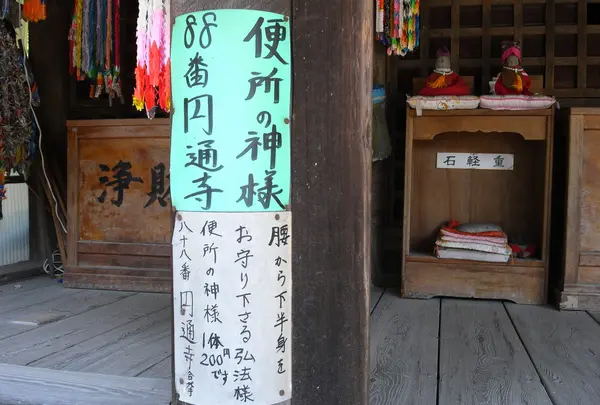 便所の神様
88番円通寺
腰から下半身を
お守り下さる弘法様
便所の神様 1体200円です
八十八番 円通寺合掌
浄財
石軽重